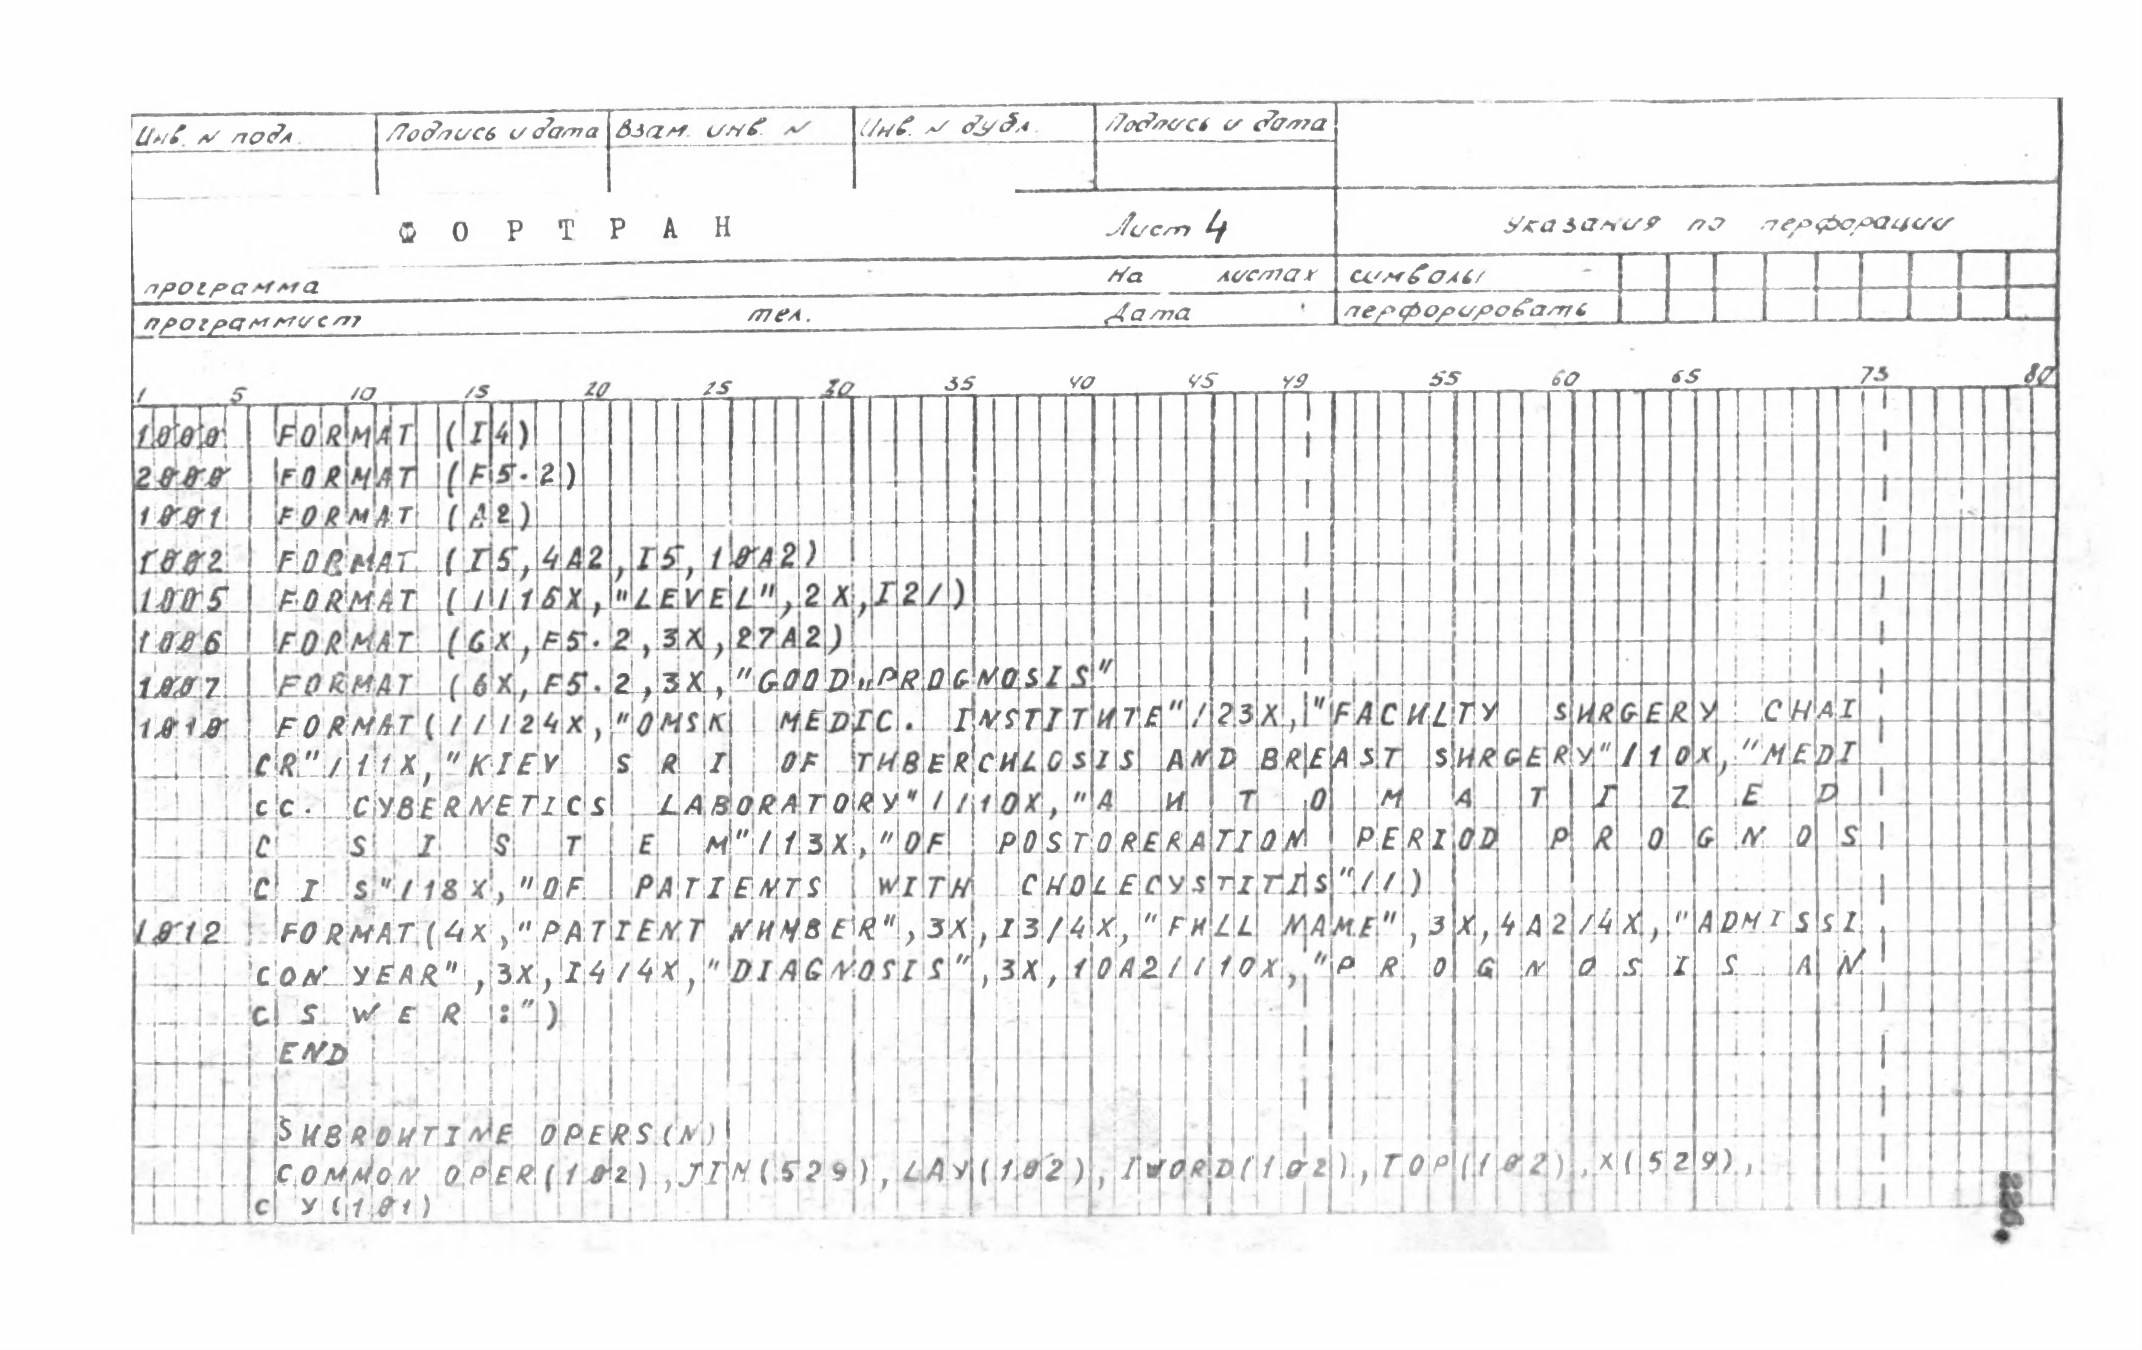 Инв. N подл. Подпись и дата Взам. инв. N Инв. N дубл. Подпись и дата
ФОРТРАН Лист 4 Указания по перфорации
программа На листах символы
программист тел. Дата перфорировать
1 5 10 15 20 25 30 35 40 45 49 55 60 65 73 80
1000 FORMAT (I4)
2000 FORMAT (F5.2)
1001 FORMAT (A2)
1002 FORMAT (I5,4A2,I5,10A2)
1005 FORMAT (///16X,"LEVEL",2X,I2/)
1006 FORMAT (6X,F5.2,3X,27A2)
1007 FORMAT (6X,F5.2,3X,"GOOD„PROGNOSIS"
1010 FORMAT(///24X,"OMSK MEDIC. INSTITUTE"/23X,"FACULTY SURGERY CHAI
CR"/11X,"KIEY S R I OF TUBERCULOSIS AND BREAST SURGERY"/10X,"MEDI
CC. CYBERNETICS LABORATORY"///10X,"A U T O M A T I Z E D
C S I S T E M"/13X,"OF POSTORERATION PERIOD P R O G N O S
C I S"/18X,"OF PATIENTS WITH CHOLECYSTITIS"//)
1012 FORMAT(4X,"PATIENT NUMBER",3X,I3/4X,"FULL NAME",3X,4A2/4X,"ADMISSI
CON YEAR",3X,I4/4X,"DIAGNOSIS",3X,10A2///10X,"P R O G N O S I S A N
C S W E R :")
END
SUBROUTINE OPERS(N)
COMMON OPER(102),JIN(529),LAY(102),IWORD(102),TOP(102),X(529),
C Y(101)
226.